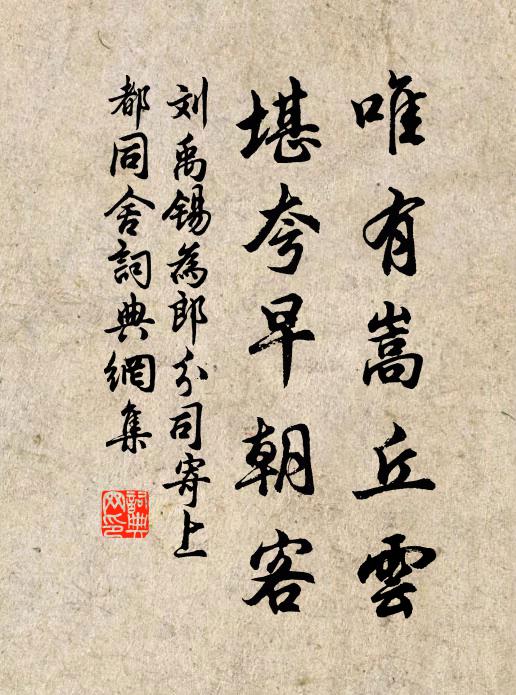 唯有嵩丘雲
堪夸早朝客
刘禹锡為郎分司寄上
都同舍詞典網集
詞典网印